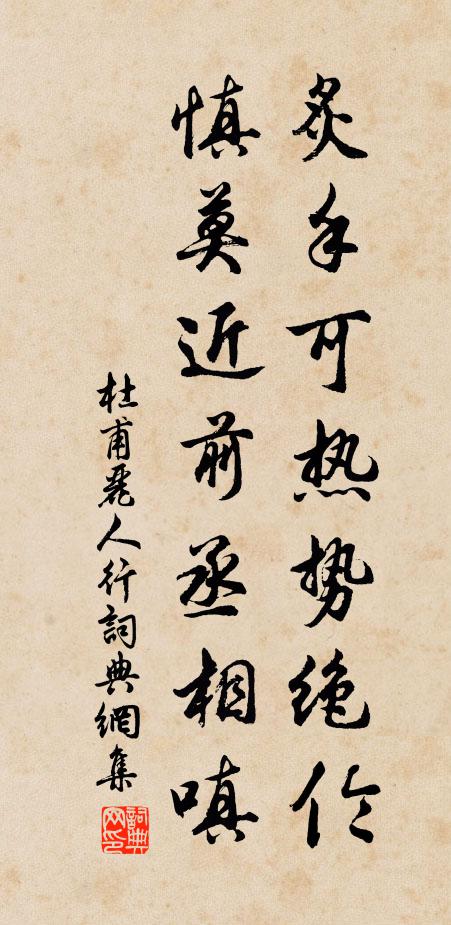 炙手可热势绝伦
慎莫近前丞相嗔
杜甫麗人行詞典網集
詞典网印